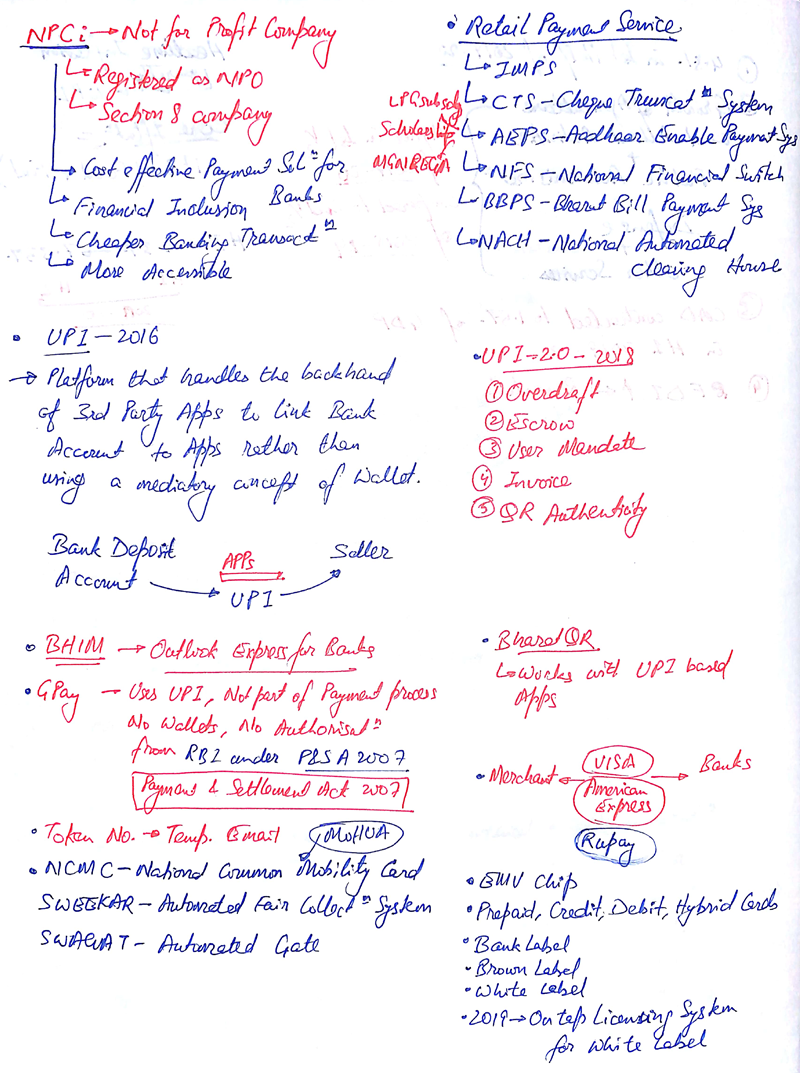 NPCi → Not for Profit Company
↳ Registered as NPO
↳ Section 8 company
↳ Cost effective Payment Solⁿ for Banks
↳ Financial Inclusion
↳ Cheaper Banking Transactⁿ
↳ More Accessible
• Retail Payment Service
↳ IMPS
↳ CTS – Cheque Truncatⁿ System
↳ AEPS – Aadhaar Enable Payment Sys
LPG subsidy
Scholarship
MGNREGA
↳ NFS – National Financial Switch
↳ BBPS – Bharat Bill Payment Sys
↳ NACH – National Automated
Clearing House
• UPI – 2016
→ Platform that handles the backhand
of 3rd Party Apps to link Bank
Account to Apps rather than
using a mediatory concept of Wallet.
Bank Deposit
Account → UPI → Seller
APPs
• UPI – 2.0 – 2018
① Overdraft
② Escrow
③ User Mandate
④ Invoice
⑤ QR Authenticity
• BHIM → Outlook Express for Banks
• GPay – Uses UPI, Not part of Payment process
No Wallets, No Authorisatⁿ
from RBI under P&SA 2007
Payment & Settlement Act 2007
• Token No. → Temp. Email
MoHUA
• NCMC – National Common Mobility Card
SWEEKAR – Automated Fair Collectⁿ System
SWAGAT – Automated Gate
• Bharat QR
↳ Works with UPI based
Apps
VISA
• Merchant ← → Banks
American
Express
Rupay
• EMV Chip
• Prepaid, Credit, Debit, Hybrid Cards
• Bank Label
• Brown Label
• White Label
• 2019 → On tap Licensing System
for White Label